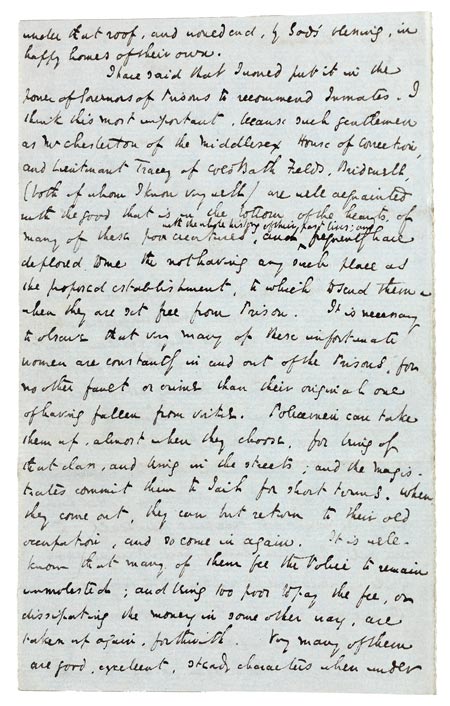 under that roof, and would end, by God's blessing, in
happy homes of their own.
I have said that I would put it in the
power of Governors of Prisons to recommend Inmates. I
think this most important, because such gentlemen
as Mr Chesterton of the Middlesex House of Correction,
and Lieutenant Tracey of Cold Bath Fields, Bridewell,
(both of whom I know very well) are well acquainted
with the good that is in the bottom of the hearts, of
many of these poor creatures, and with the whole history of their past lives; and frequently have
deplored to me the not having any such place as
the proposed establishment, to which to send them –
when they are set free from Prison. It is necessary
to observe that very many of these unfortunate
women are constantly in and out of the Prisons, for
no other fault or crime than their original one
of having fallen from virtue. Policemen can take
them up, almost when they choose, for being of
that class, and being in the streets; and the magis-
trates commit them to Jail for short terms. When
they come out, they can but return to their old
occupation, and so come in again. It is well-
known that many of them fee the Police to remain
unmolested; and being too poor to pay the fee, or
dissipating the money in some other way, are
taken up again, forthwith. Very many of them
are good, excellent, steady characters when under